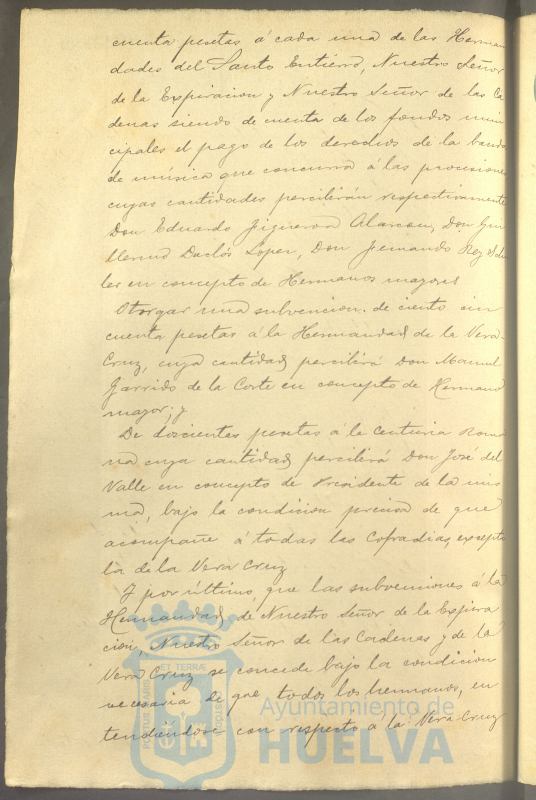 cuenta pesetas á cada una de las Herman
dades del Santo Entierro, Nuestro Señor
de la Expiracion y Nuestro Señor de las Ca
denas siendo de cuenta de los fondos muni
cipales el pago de los derechos de la banda
de música que concurra á las procesiones
cuyas cantidades percibirán respectivamente
Don Eduardo Figueroa Alarcon, Don Gui
llermo Duclós Lopez, Don Fernando Rey
ler en concepto de Hermanos mayores
Otorgar una subvencion de ciento cin
cuenta pesetas á la Hermandad de la Vera
Cruz, cuya cantidad percibirá Don Manuel
Garrido de la Corte en concepto de Hermano
mayor; y
De doscientas pesetas á la Centuria Roma
na cuya cantidad percibirá Don José del
Valle en concepto de Presidente de la mis
ma, bajo la condicion precisa de que
acompañe á todas las Cofradias, excepto
la de la Vera Cruz
Y por último, que las subvenciones á la
Hermandad de Nuestro Señor de la Expira
cion, Nuestro Señor de las Cadenas y de la
Vera Cruz se concede bajo la condicion
necesaria de que todos los hermanos, en
tendiéndose con respecto á la Vera-Cruz
PORTUS MARIS ET TERRÆ CUSTODIA
Ayuntamiento de
HUELVA